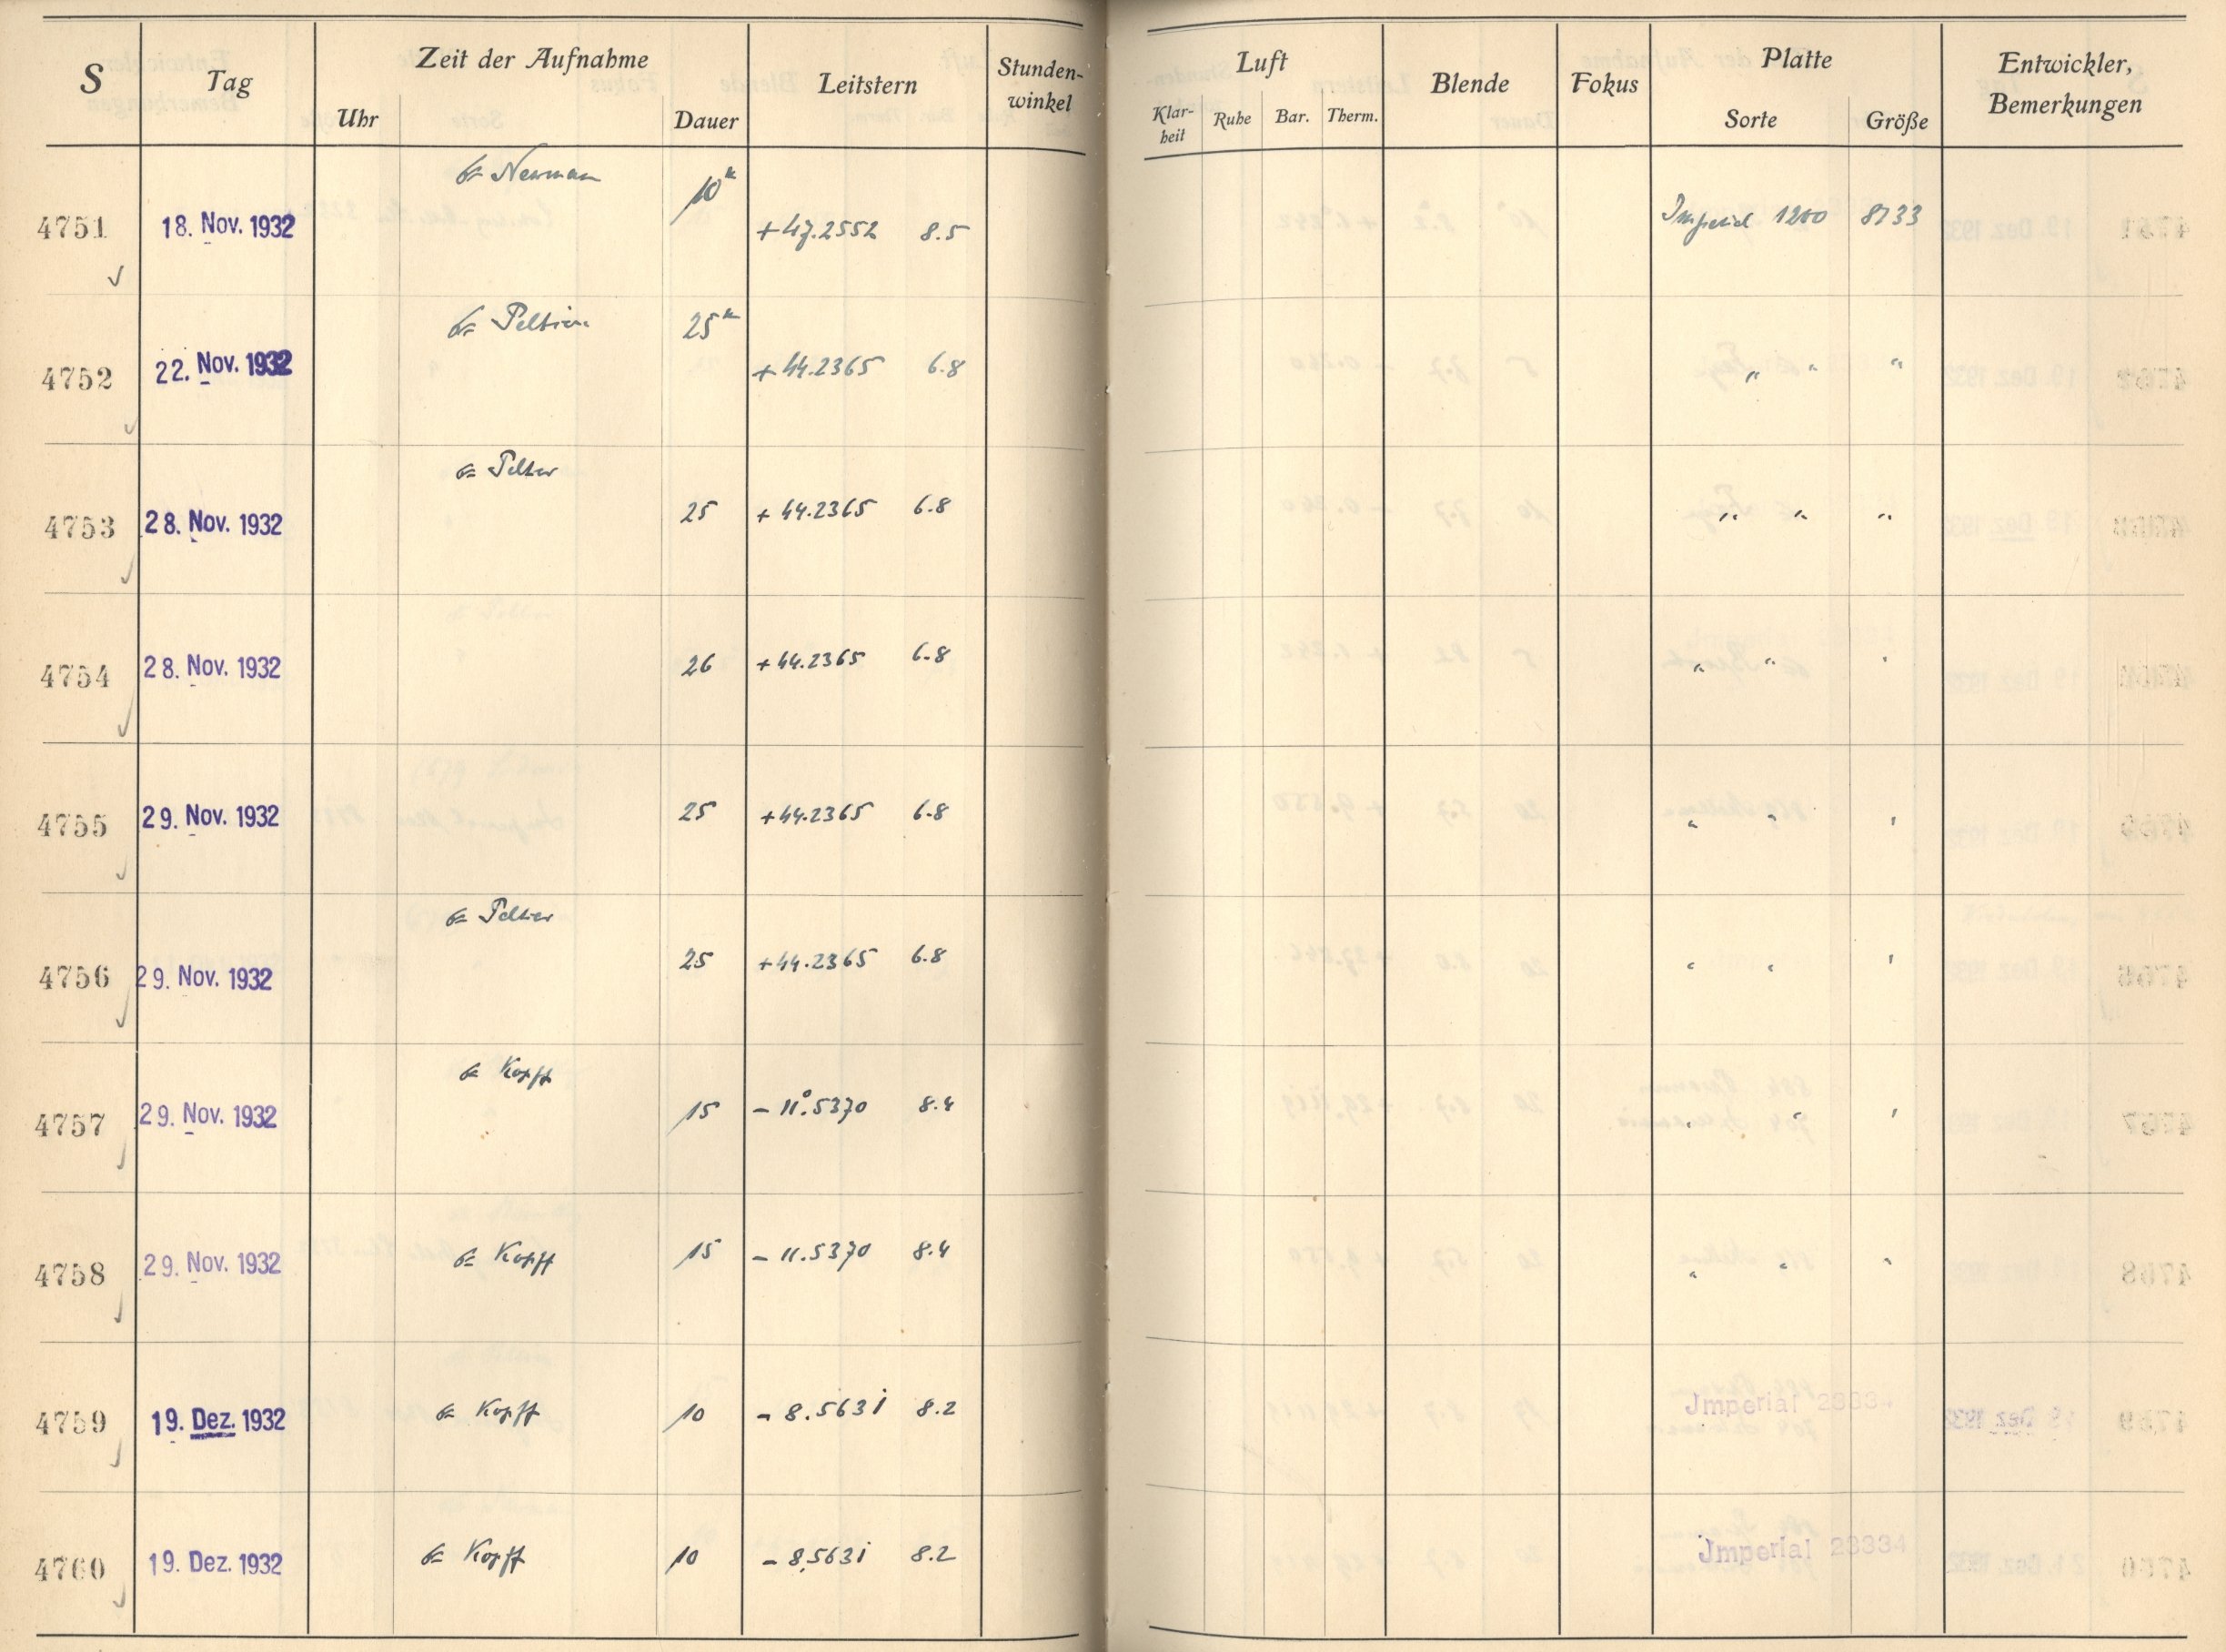 S Tag Zeit der Aufnahme Leitstern Stunden-winkel Luft Blende Fokus Platte Entwickler, Bemerkungen
Uhr Dauer Klar-heit Ruhe Bar. Therm. Sorte Größe
Newman 10
4751 18. Nov. 1932 +47.2552 8.5 Imperial 1200 8733
Peltier 25
4752 22. Nov. 1932 +44.2365 6.8 " " "
Peltier
4753 28. Nov. 1932 25 +44.2365 6.8 " " "
4754 28. Nov. 1932 26 +44.2365 6.8 " " "
4755 29. Nov. 1932 25 +44.2365 6.8 " " "
Peltier
4756 29. Nov. 1932 25 +44.2365 6.8 " " "
Kopff
4757 29. Nov. 1932 15 -11°.5370 8.4 " " "
4758 29. Nov. 1932 Kopff 15 -11.5370 8.4 " " "
4759 19. Dez. 1932 Kopff 10 -8.5631 8.2 Jmperial 23334
4760 19. Dez. 1932 Kopff 10 -8.5631 8.2 Jmperial 23334